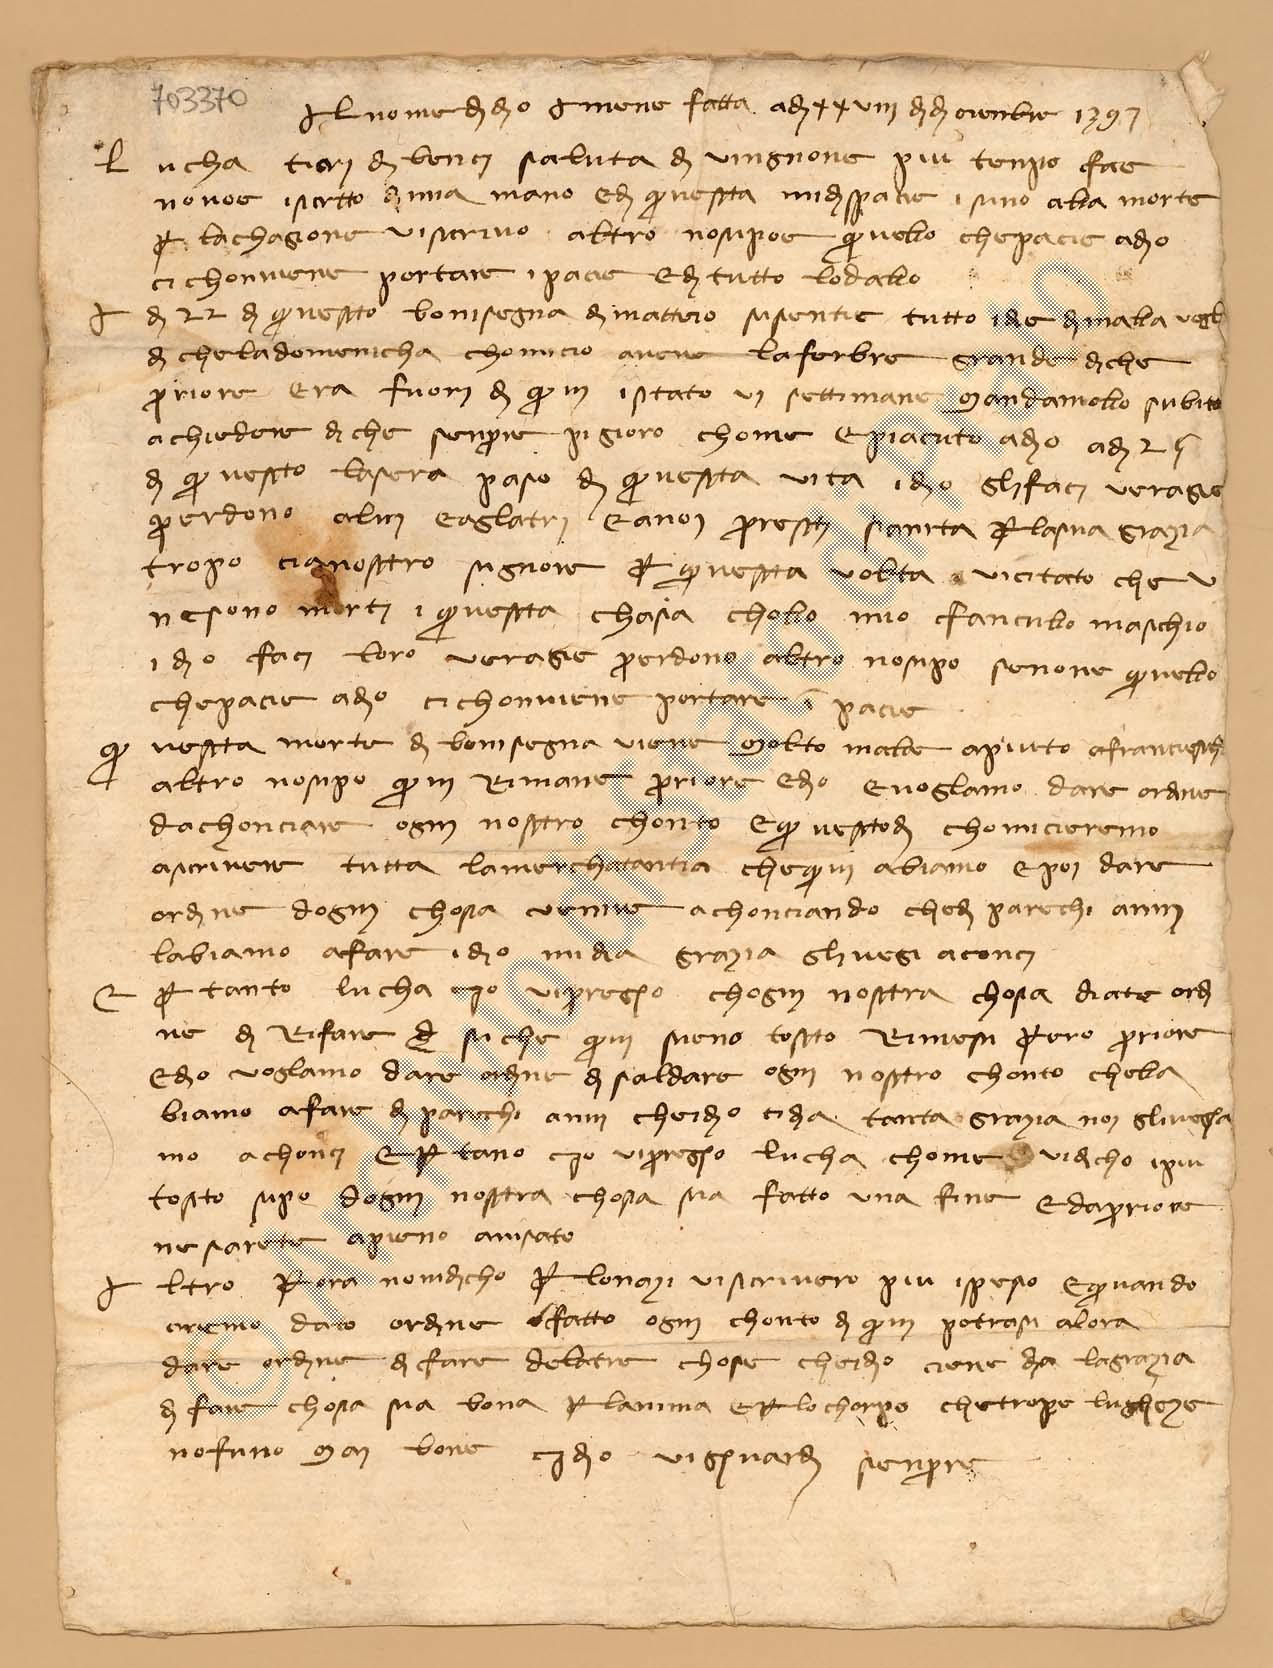 703370
Il nome di dio amene fatta adi xxviii di diciembre 1397
Lucha tieri di benci saluta di vingnone piu tenpo fae
nonve iscritto di mia mano e di questa midispiacie isino alla morte
per lachagione viscrivo altro nosipoe quello chepiacie adio
ci chonviene portare ipacie e di tutto lodallo
I di 22 di questo bonisegna di matteio si sentie tutto idie di malla voglia
di che ladomenicha chomincio avere lafebre grande diche
priore era fuori di qui istato vi settimane mandamollo subito
a chiedere diche senpre pigioro chome e piacuto adio adi 25
di questo lasera paso di questa vita idio gli faci veragie
perdono alui eaglatri e anoi presti sanita per lasua grazia
tropo cia nostro signore per questa volta vicitato che v
ne sono morti i questa chasa chollo mio fanciullo maschio
idio faci loro veragie perdono altro nosipo senone quello
chepiacie adio ci chonviene portare in pacie
Questa morte di bonisegna viene molto malle apunto afrancescho
altro nosipo qui rimane priore edio e voglamo dare ordine
dachonciare ogni nostro chonto e questo di chomincieremo
ascrivere tutta lamerchatantia chequi abiamo e poi dare
ordine dogni chosa venire achonciando chedi parechi anni
labiamo afare idio midia grazia glivegi aconci
E per tanto lucha io vi pregho chogni nostra chosa diate ordi
ne di rifare d si che qui sieno tosto rimesi pero priore
edio voglamo dare ordine di saldare ogni nostro chonto chella
biamo afare di parechi anni cheidio cidia tanta grazia noi gli vegia
mo achonci e per tano io vi pregho lucha chome vidicho ipiu
tosto sipo dogni nostra chosa sia fatto una fine e dapriore
ne sarete apieno avisato
Altro per ora nonvidicho per lonazi viscrivero piu ispeso e quando
aremo dato ordine e fatto ogni chonto di qui potrasi alora
dare ordine di fare delatre chose cheidio ciene dia lagrazia
di fare chosa sia bona per lanima e per lo chorpo chetrope lugheze
nofuno mai bone idio vi ghuardi senpre